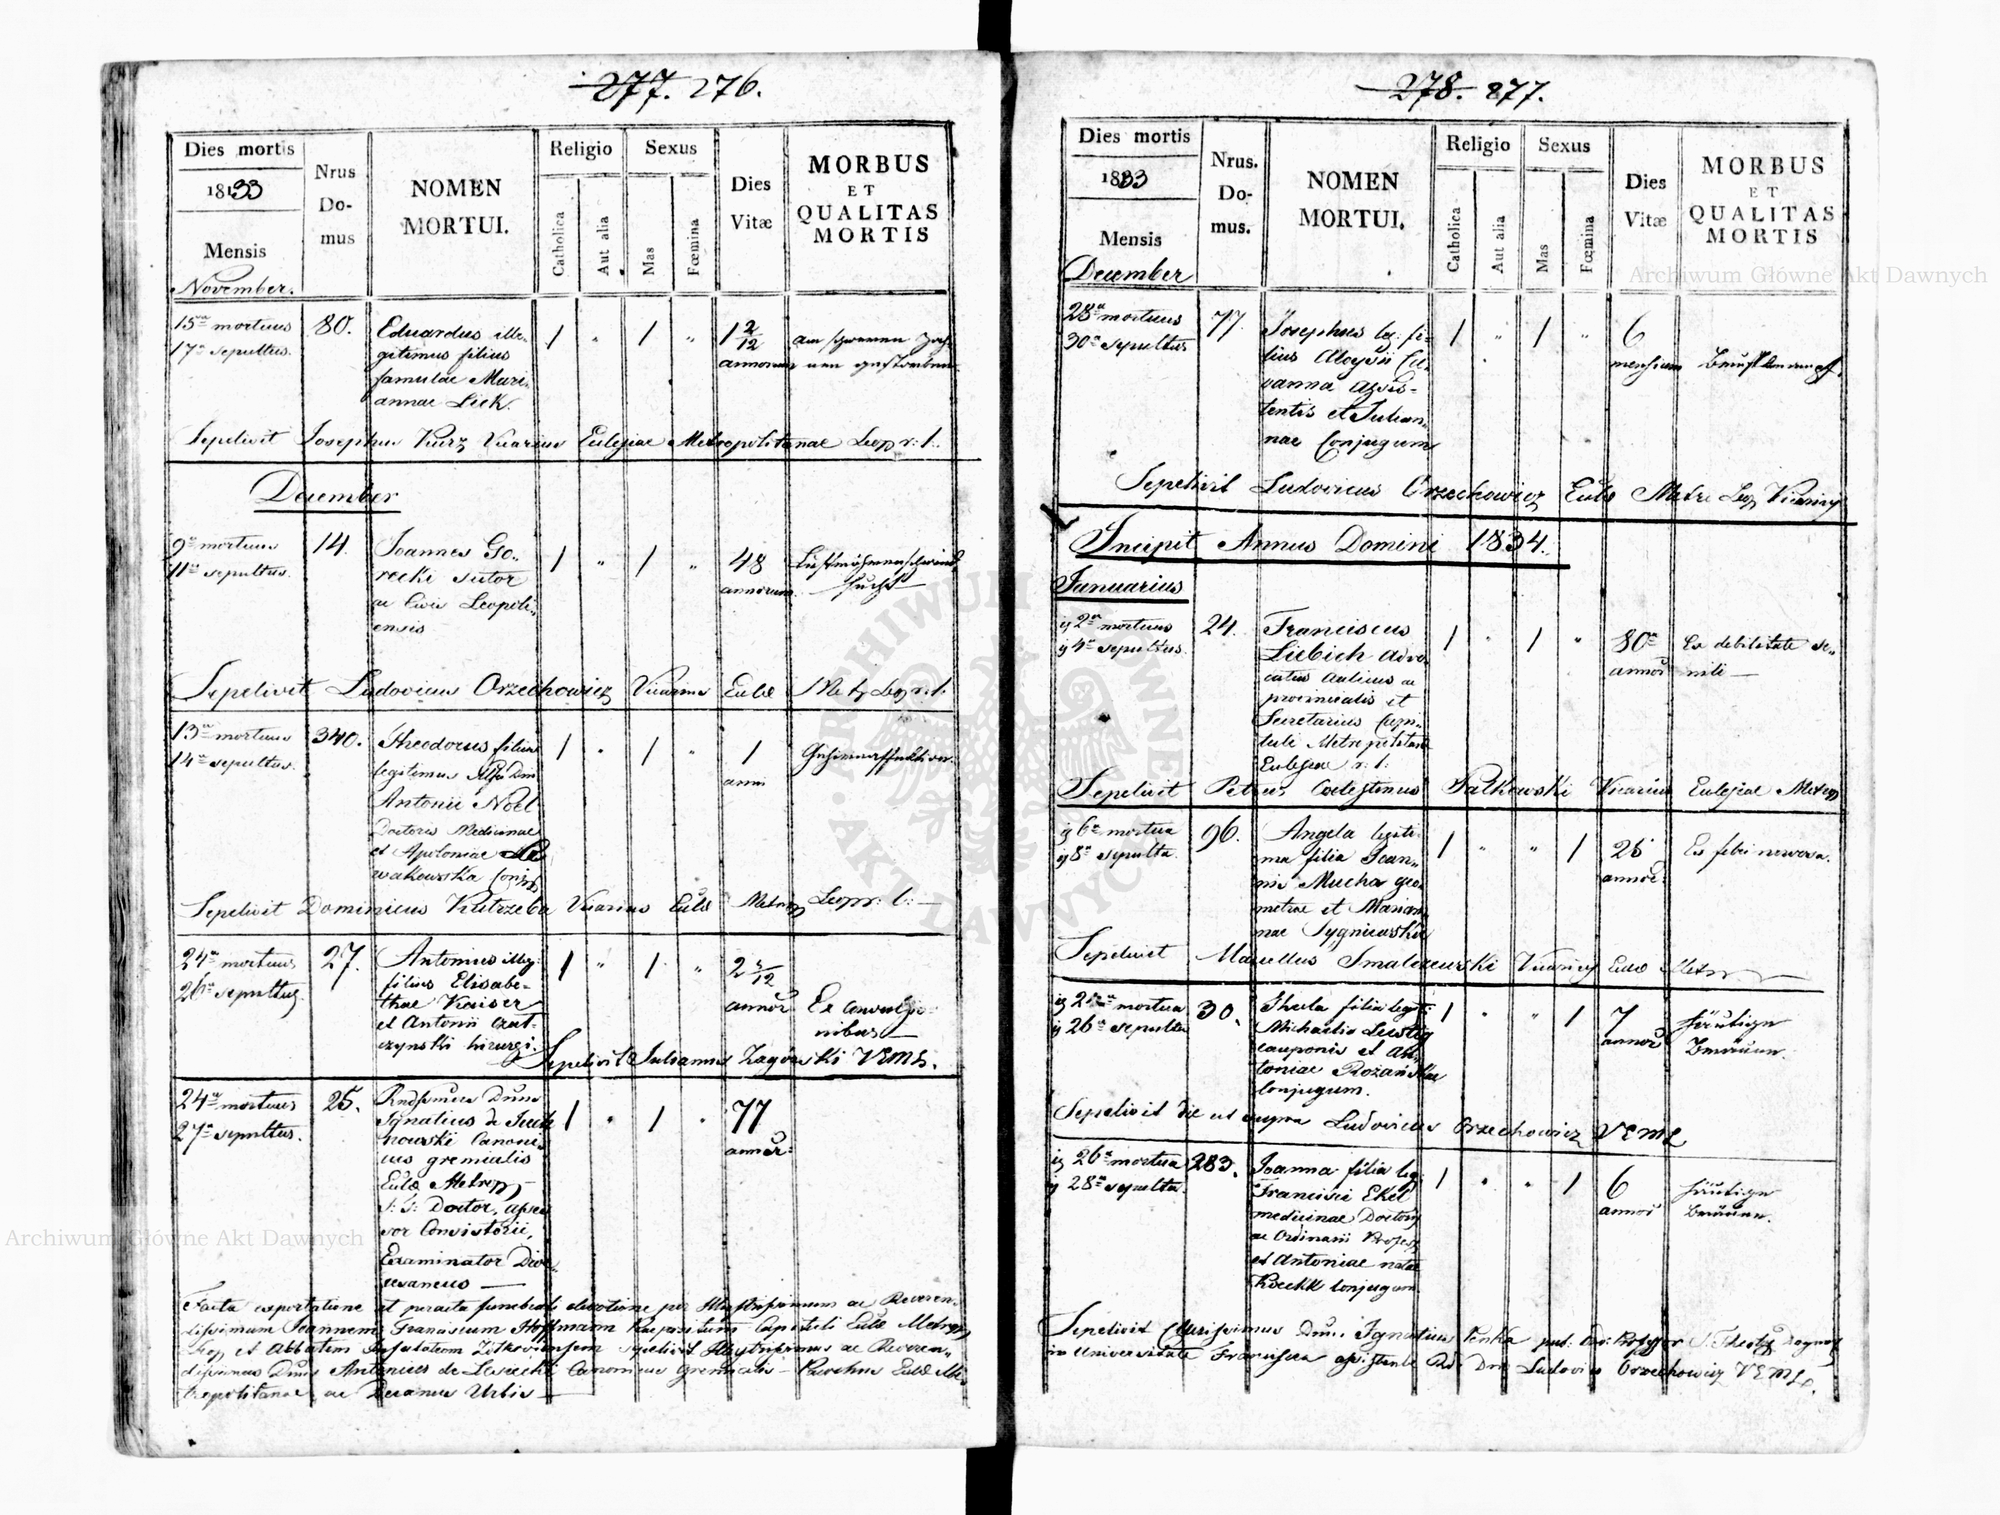 277. 276.
Dies mortis
1833
Mensis
November.
Nrus
Do-
mus
NOMEN
MORTUI.
Religio
Catholica
Aut alia
Sexus
Mas
Fœmina
Dies
Vitæ
MORBUS
ET
QUALITAS
MORTIS
15ta mortuus
17a sepultus.
80.
Eduardus ille-
gitimus filius
famulae Mari-
annae Liek.
1 " 1 "
1 2/12
annorum
Sepelivit Josephus Kurz Vicarius Eclesiae Metropolitanae Leop r: l:
December
9a mortuus
11a sepultus.
14.
Joannes Go-
recki sutor
ac Civis Leopoli-
ensis
1 " 1 "
48
annorum
Sepelivit Ludovicus Orzechowicz Vicarius Eccl. Metr. Leop r: l.
13a mortuus
14a sepultus.
340.
Theodorus filius
legitimus
Antonii Noël
Doctoris Medicinae
et Apoloniae
1 " 1 "
1
anni
Sepelivit Dominicus Kutrzeba Vicarius Eccl. Metrop Leop r: l:
24a mortuus
26a sepultus.
27.
Antonius illeg:
filius Elisabe-
thae Kaiser
et Antonii Czat-
czynski hirurgi.
1 " 1 "
2 /12
annor
Ex convulsio-
nibus
Sepelivit Julianus Zagórski VEML.
24a mortuus
27a sepultus.
25.
Rndssimus Dnus
Ignatius de
Canoni-
cus gremialis
Eccl. Metrop
S: T: Doctor, asses-
sor Consistorii,
Examinator Dioe-
cesaneus
1 " 1 "
77
annor:
Facta exportatione et peracta funebrali devotione per Illustrissimum ac Reveren-
dissimum Joannem Franciscum Hoffmann Praepositum Capituli Eccl. Metrop
Leop et Abbatem Infulatum sepelivit Illustrissimus ac Reveren-
dissimus Dnus Antonius de Canonicus Gremialis Parochus Eccl. Me-
tropolitanae ac Decanus Urbis
278. 277.
Dies mortis
1833
Mensis
December
Nrus.
Do-
mus.
NOMEN
MORTUI.
Religio
Catholica
Aut alia
Sexus
Mas
Fœmina
Dies
Vitæ
MORBUS
ET
QUALITAS
MORTIS
28a mortuus
30a sepultus
77.
Josephus leg: fi-
lius Aloysii
assis-
tentis et Julian-
nae Conjugum
1 " 1 "
6
mensium
Sepelivit Ludovicus Orzechowicz Eccl. Metr. Leop Vicarius
Incipit Annus Domini 1834.
Januarius
2a mortuus
4a sepultus.
24.
Franciscus
Liebich advo-
catus aulicus ac
provincialis et
Secretarius Capi-
tuli Metropolitan
Eclesiae r: l:
1 " 1 "
80
annor
Ex debilitate se-
nili
Sepelivit Petrus Coelestinus Pałkowski Vicarius Eclesiae Metrop
6a mortua
8a sepulta.
96.
Angela legiti-
ma filia Joan-
nis Mucha geo-
metrae et Marian-
nae Sygniewskie
1 " " 1
25
annor:
Ex febri nervosa.
Sepelivit Marcellus Smalczewski Vicarius Eccl. Metrop
mortua
26a sepulta
30.
Thecla filia legit:
Michaelis Lewicz
cauponis et An-
toniae Rozańskae
Conjugum.
1 " " 1
7
annor
häutige
Bräune.
Sepelivit die ut supra Ludovicus Orzechowicz VEML
26a mortua
28a sepulta.
283.
Joanna filia leg.
Francisci Ekel
medicinae Doctoris
ac Ordinarii Profess
et Antoniae natae
Conjugum
1 " " 1
6
annor
häutige
Bräune.
Sepelivit Clarissimus Dnus Ignatius Penka
in Universitate Francisca assistente Rd. Dno Ludovico Orzechowicz VEML.
Archiwum Główne Akt Dawnych
Archiwum Główne Akt Dawnych
ARCHIWUM GŁÓWNE AKT DAWNYCH